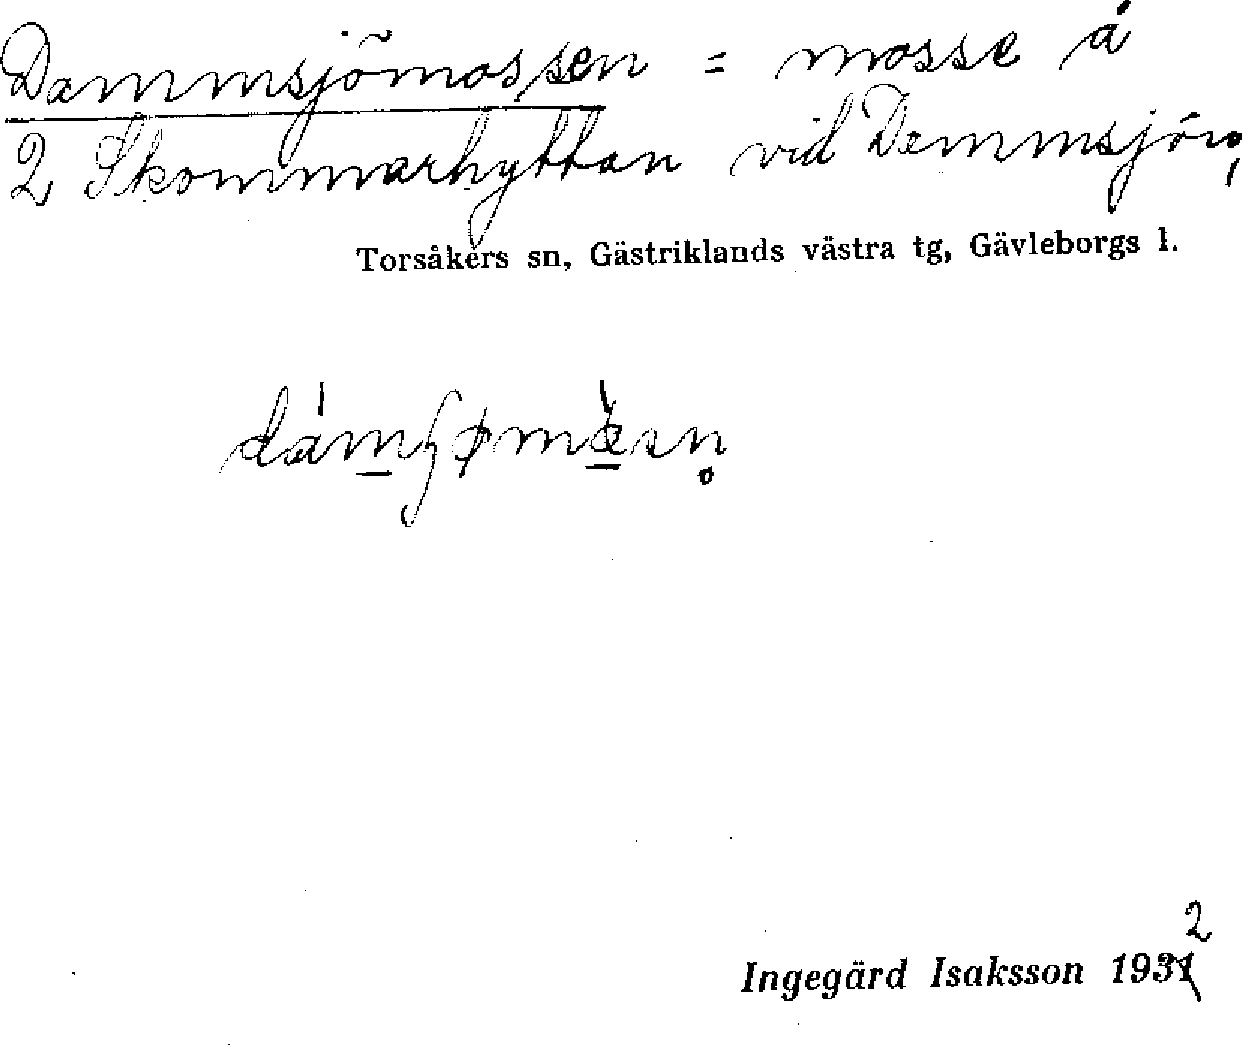 Dammsjömossen = mosse å
2 Skommarhyttan vid Demmsjön,
Torsåkers sn, Gästriklands västra tg, Gävleborgs l.
Ingegärd Isaksson 1932